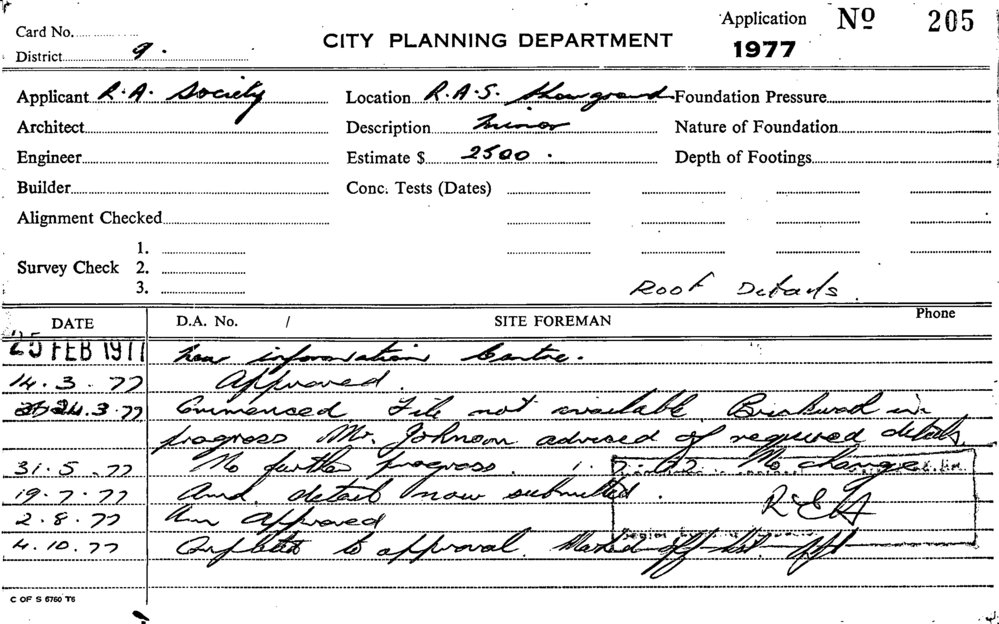 Card No.
District 9.
CITY PLANNING DEPARTMENT
Application
1977
Nº 205
Applicant R.A. Society
Location R.A.S. Showground
Foundation Pressure
Architect
Description Minor
Nature of Foundation
Engineer
Estimate $ 2500.
Depth of Footings
Builder
Conc. Tests (Dates)
Alignment Checked
Survey Check
1.
2.
3.
Roof Details.
DATE
D.A. No. /
SITE FOREMAN
Phone
25 FEB 1977 new information Centre.
14.3.77 Approved.
24.3.77 Commenced File not available Brickwork in
progress Mr. Johnson advised of required details.
31.5.77 No further progress. 1.7.77 No change
19.7.77 Amd. detail now submitted.
2.8.77 Am Approved
4.10.77 Completed to approval. Marked off list.
C OF S 6760 T6